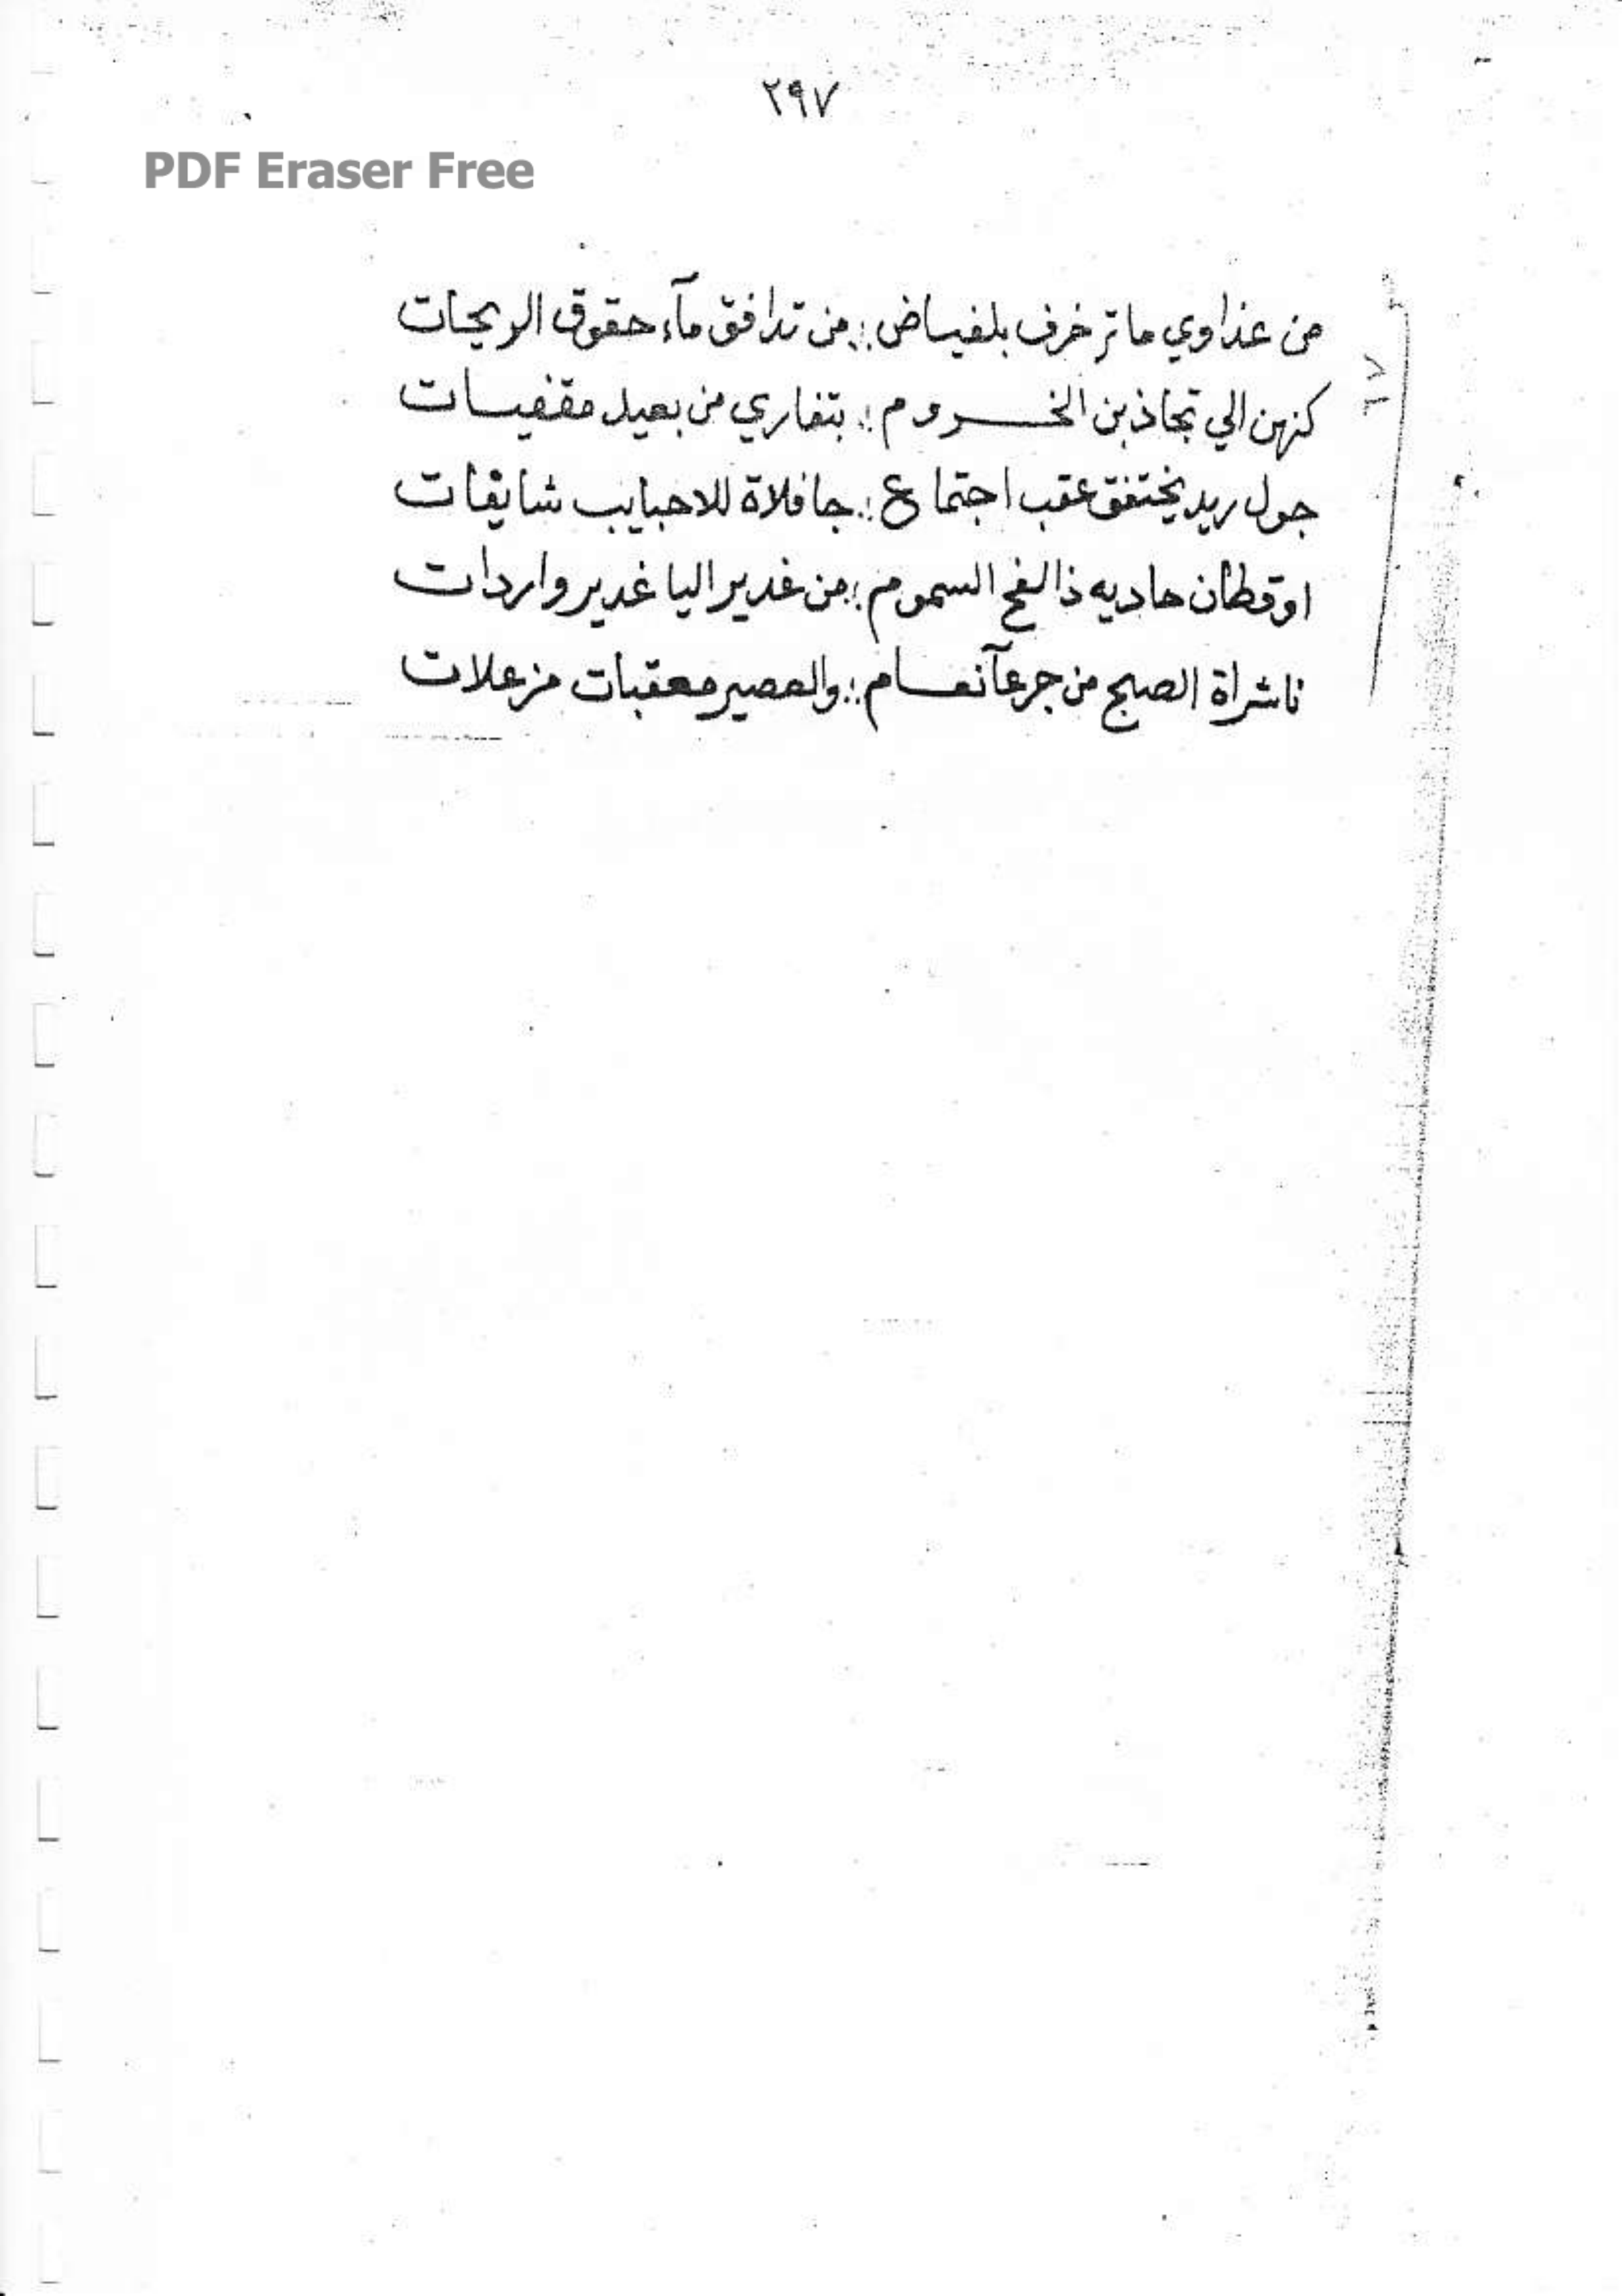 ٢٩٧
PDF Eraser Free
من عذاوي ماتزخرف بلفياض :: من تدافق مآء حقوق الريحات
كنهن الي تجاذبن الخــروم :: بتفاري من بعيد مقفيات
جول ريد يختفق عقب اجتماع :: جافلاة للاحبايب شايقات
او قطان حاديه ذالفح السموم :: من غدير اليا غدير واردات
ناشراة الصبح من جرعآ نعــام :: والعصير معقبات مزعلات